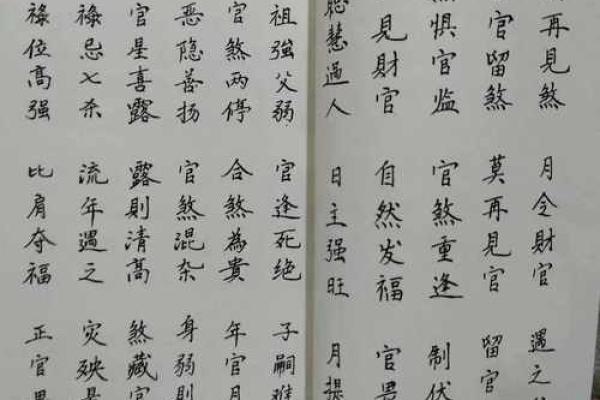 再見煞 月令財官 遇之
官留煞 莫再見官 留官
惧官监 官煞重逢 制伏
見財官 自然发福 官畏
聪慧過人 日主强旺 月提
祖強父弱 官逢死绝 子嗣难
官煞两停 合煞為貴 年官月
恶隐善扬 官煞混杂 身弱則
官星喜露 露則清高 煞藏官
祿忌七杀 流年遇之 灾殃
祿位高强 比肩夺福 正官